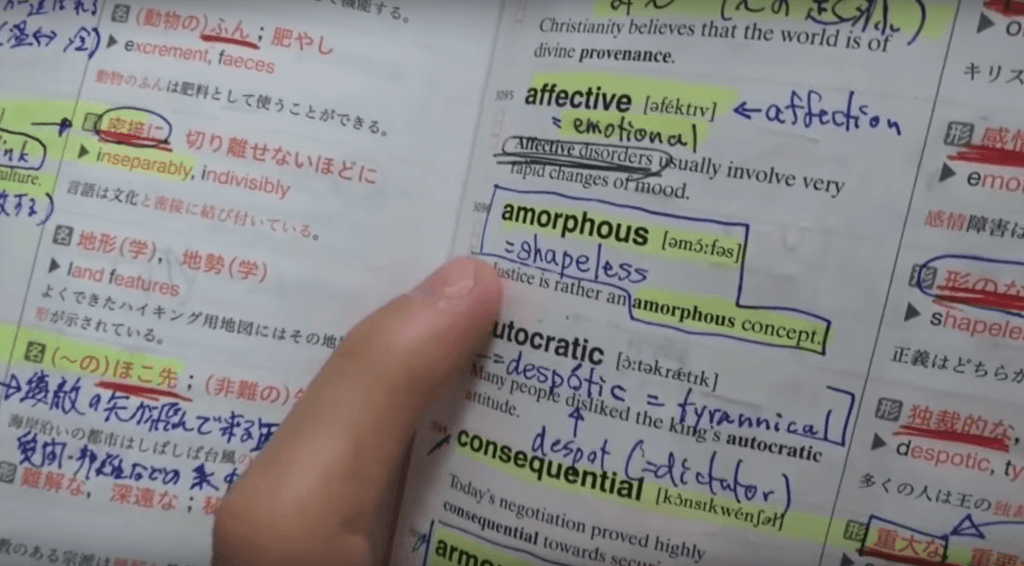 機能する。
名 (動物の)ふん；肥やし
▶ excrement, faeces
動物のふんは肥料として使うことができる。
密接に 切り離せないほどに
▶ inseparably, indivisibly
ulture.
言語は文化と密接に結び付いている。
名 地形(学)， 地勢(学)
▶ land features
よくできたハイキング用地図にはその地
形が示されている。
名 (〜の)ほこ先；(非難の)
海岸沿いの都市はしばしば台風の
形 難解な，深遠な；
Christianity believes that the world is of
divine provenance.
3095 affective [əféktɪv] ←affection
= emotional
Affective disorders usually involve very
rapid changes of mood.
3096 amorphous [əmɔ́ːfəs]
=shapeless
Justice is rather an amorphous concept.
utocratic [ɔ̀ːtəkrǽtɪk]
=despotic = tyrannical
Many people disliked the king's autocratic
attitude.
despot (=dictator)
consequential [kɔ̀nsɪkwénʃəl]
Today's negotiation proved highly
consequential towards secu
armo
キリス
形 感情
▶ emo
感情障害は
形 形のな
▶ shapele
正義はどちら
形 独裁的な，
▶ despotic, ty
多くの人は王の独裁
形 重大な， 重要